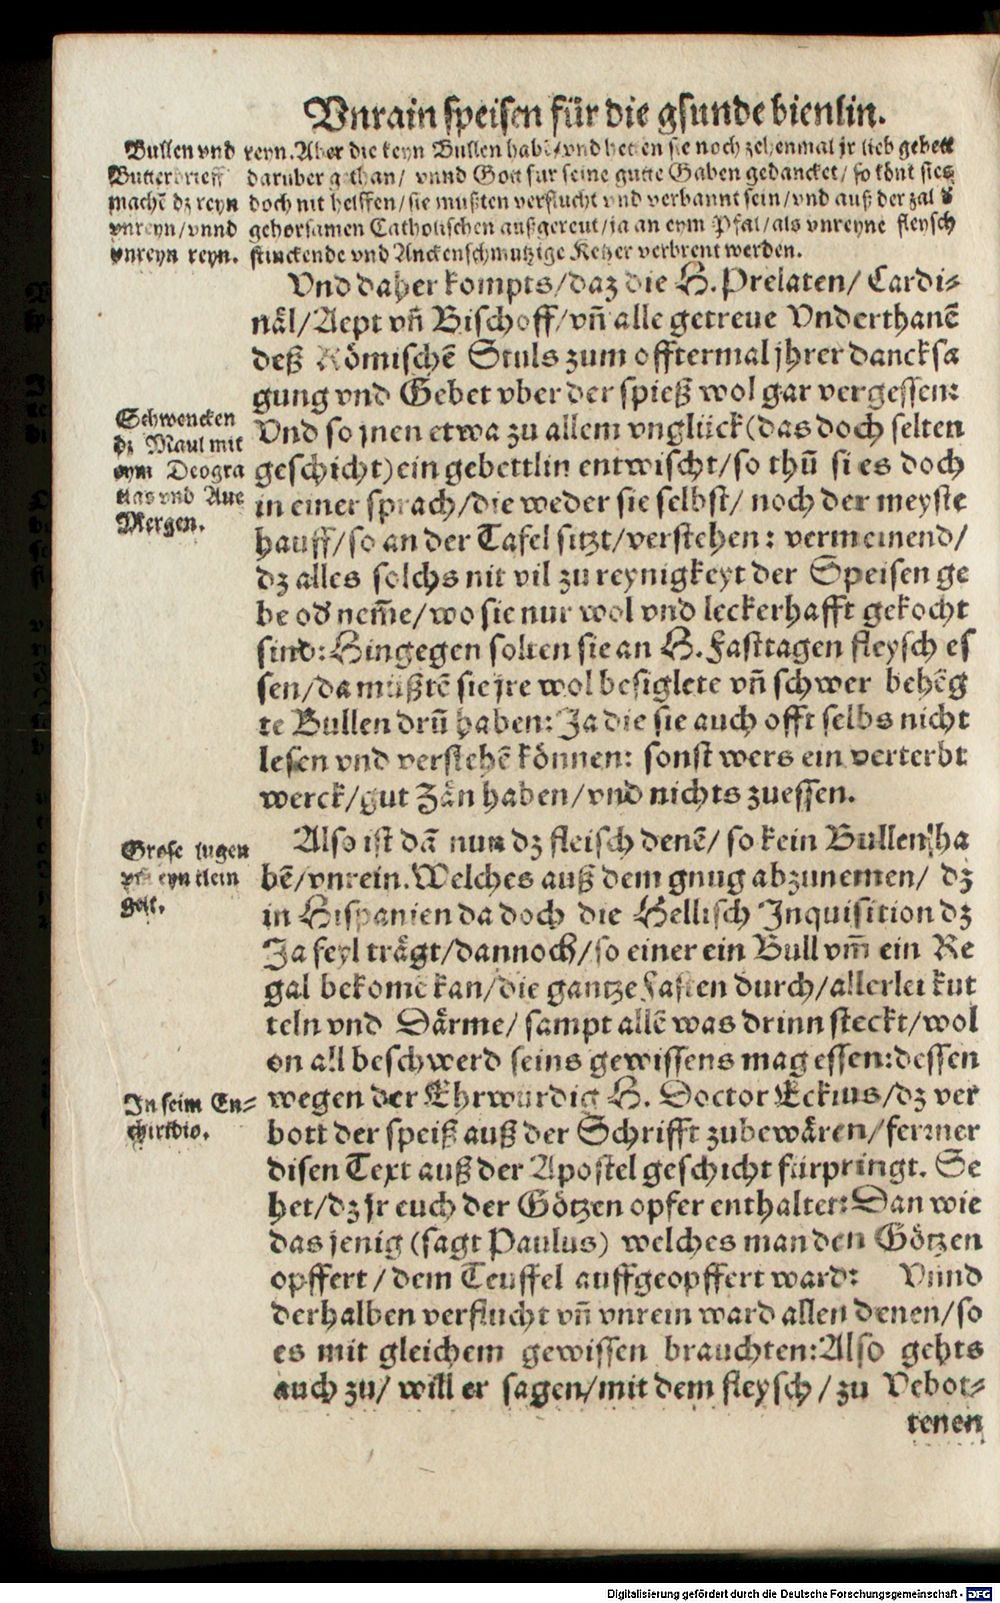 Vnrain speisen für die gsunde bienlin.
Bullen vnd
Butterbrieff
machẽ dz reyn
vnreyn/vnnd
vnreyn reyn.
reyn. Aber die keyn Bullen habẽ/vnd hetten sie noch zehenmal jr lieb gebett
daruber gethan/ vnnd Gott für seine gutte Gaben gedancket/ so könt sies
doch nit helffen/sie müßten verflucht vnd verbannt sein/vnd auß der zal d
gehorsamen Catholischen außgereut/ja an eym Pfal/als vnreyne fleysch
stinckende vnd Anckenschmutzige Ketzer verbrent werden.
Vnd daher kompts/daz die H. Prelaten/ Cardi-
näl/Aept vñ Bischoff/vñ alle getreue Vnderthanẽ
deß Römischẽ Stuls zum offtermal jhrer dancksa
gung vnd Gebet vber der spieß wol gar vergessen:
Vnd so jnen etwa zu allem vnglück (das doch selten
geschicht) ein gebettlin entwischt/so thũ si es doch
in einer sprach/die weder sie selbst/ noch der meyste
hauff/so an der Tafel sitzt/verstehen: vermeinend/
dz alles solchs nit vil zu reynigkeyt der Speisen ge
be od nem̃e/wo sie nur wol vnd leckerhafft gekocht
sind: Hingegen solten sie an H. Fasttagen fleysch es
sen/da müßtẽ sie jre wol besiglete vñ schwer behẽg
te Bullen drũ haben: Ja die sie auch offt selbs nicht
lesen vnd verstehẽ können: sonst wers ein verterbt
werck/gut Zän haben/vnd nichts zuessen.
Schwencken
dz Maul mit
eym Deogra
tias vnd Aue
Mergen.
Also ist dã nun dz fleisch denẽ/ so kein Bullen ha
bẽ/vnrein. Welches auß dem gnug abzunemen/ dz
in Hispanien da doch die Hellisch Inquisition dz
Ja feyl trägt/dannoch/so einer ein Bull vm̃ ein Re
gal bekome kan/die gantze Fasten durch/allerlei kut
teln vnd Därme/ sampt allẽ was drinn steckt/wol
on all beschwerd seins gewissens mag essen: dessen
wegen der Ehrwürdig H. Doctor Eckius/dz ver
bott der speiß auß der Schrifft zubewären/ferrner
disen Text auß der Apostel geschicht fürpringt. Se
het/dz jr euch der Götzen opfer enthaltet: Dan wie
das jenig (sagt Paulus) welches man den Götzen
opffert/dem Teuffel auffgeopffert ward: Vnnd
derhalben verflucht vñ vnrein ward allen denen/so
es mit gleichem gewissen brauchten: Also gehts
auch zu/ will er sagen/mit dem fleysch/zu Vebot-
tenen
Grose lugen
vm eyn klein
gelt.
In seim En-
chiridio.
Digitalisierung gefördert durch die Deutsche Forschungsgemeinschaft - DFG